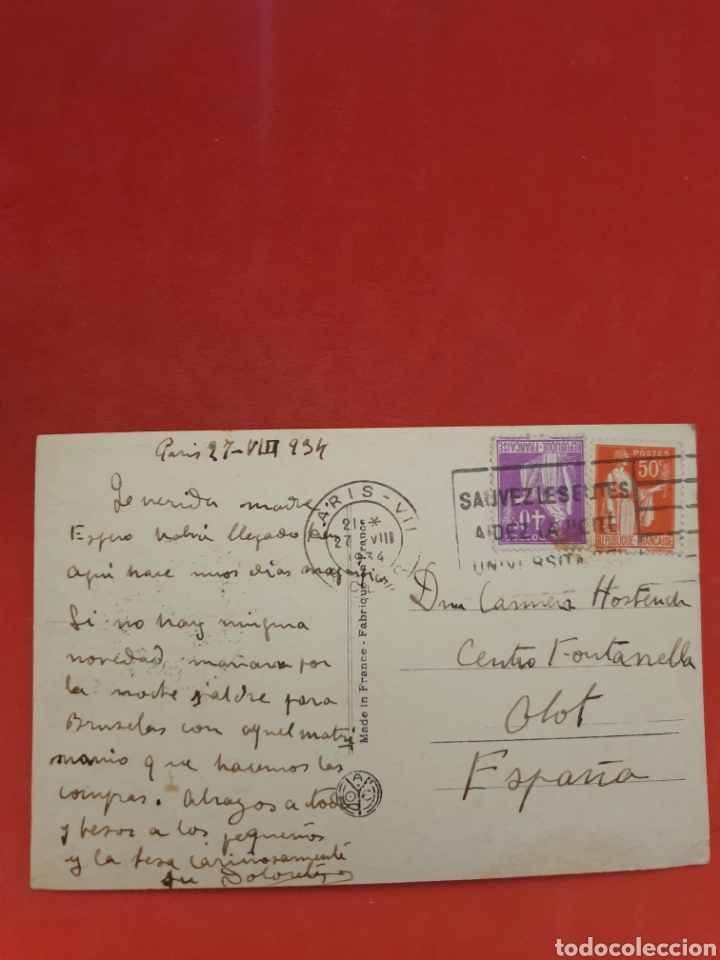 Paris 27-VIII 934
Querida madre
Espero habrá llegado bien
aqui hace unos dias magnificos
Si no hay ninguna
novedad, mañana por
la noche saldre para
Bruselas con aquel matri
monio que hacemos las
compras. Abrazos a todos
y besos a los pequeños
y la besa cariñosamente
su Doloretes
PARIS-VII
21 *
27 VIII
34
REPUBLIQUE FRANÇAISE
40c
POSTES
50c
REPUBLIQUE FRANCAISE
SAUVEZ LES ELITES
AIDEZ LA CITÉ
UNIVERSITA
Made in France - Fabriqué en France
Dna Carmen Hostench
Centro Fontanella
Olot
España
todocoleccion